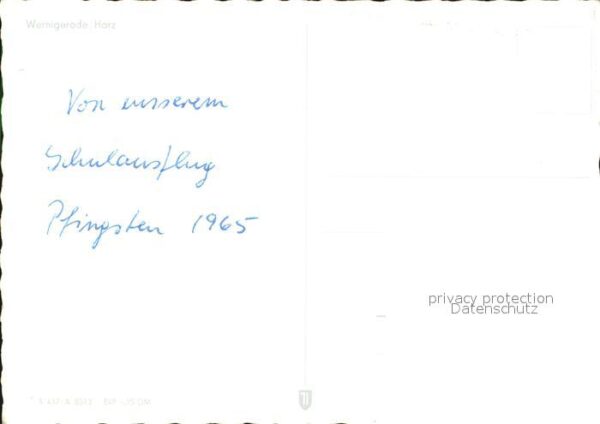 Wernigerode Harz
Von unserem
Schulausflug
Pfingsten 1965
privacy protection
Datenschutz